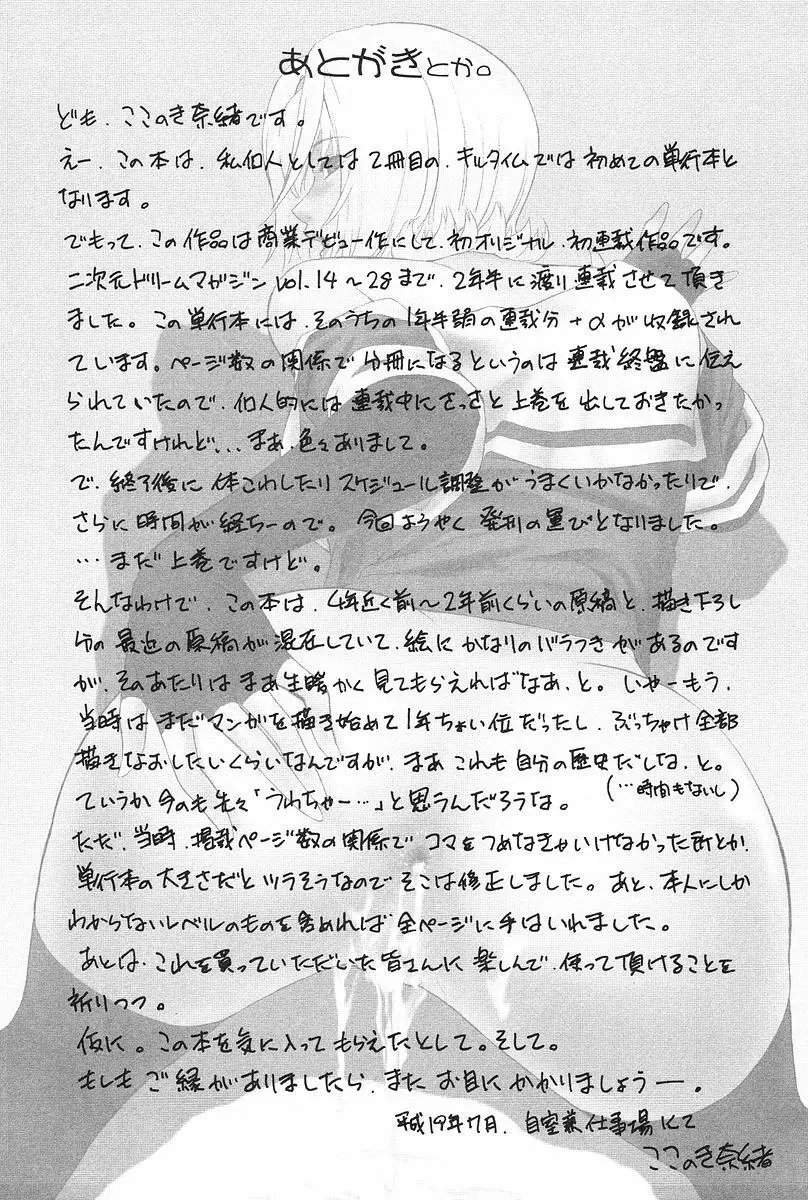 あとがきとか。
ども、ここのき奈緒です。
えー、この本は、私個人としては2冊目の、キルタイムでは初めての単行本と
なります。
でもって、この作品は商業デビュー作にして、初オリジナル、初連載作品です。
二次元ドリームマガジン vol.14～28まで、2年半に渡り連載させて頂き
ました。この単行本には、そのうちの1年半弱の連載分+αが収録され
ています。ページ数の関係で分冊になるというのは連載終盤に伝え
られていたので、個人的には連載中にさっさと上巻を出しておきたかっ
たんですけれど、、、まあ、色々ありまして。
で、終了後に体こわしたりスケジュール調整がうまくいかなかったりで、
さらに時間が経ちーので。今回ようやく発刊の運びとなりました。
…まだ上巻ですけど。
そんなわけで、この本は、4年近く前～2年前くらいの原稿と、描き下ろし
分の最近の原稿が混在していて、絵にかなりのバラつきがあるのです
が、そのあたりはまあ生暖かく見てもらえればなあ、と。いやーもう、
当時はまだマンガを描き始めて1年ちょい位だったし、ぶっちゃけ全部
描きなおしたいくらいなんですが、まあこれも自分の歴史だしな、と。
(…時間もないし)
ていうか今のも先々「うわちゃー…」と思うんだろうな。
ただ、当時、掲載ページ数の関係でコマをつめなきゃいけなかった所とか、
単行本の大きさだとツラそうなのでそこは修正しました。あと、本人にしか
わからないレベルのものを含めれば全ページに手はいれました。
あとは、これを買っていただいた皆さんに楽しんで、使って頂けることを
祈りつつ。
仮に。この本を気に入ってもらえたとして。そして。
もしもご縁がありましたら、またお目にかかりましょうー。
平成19年7月、自室兼仕事場にて
ここのき奈緒